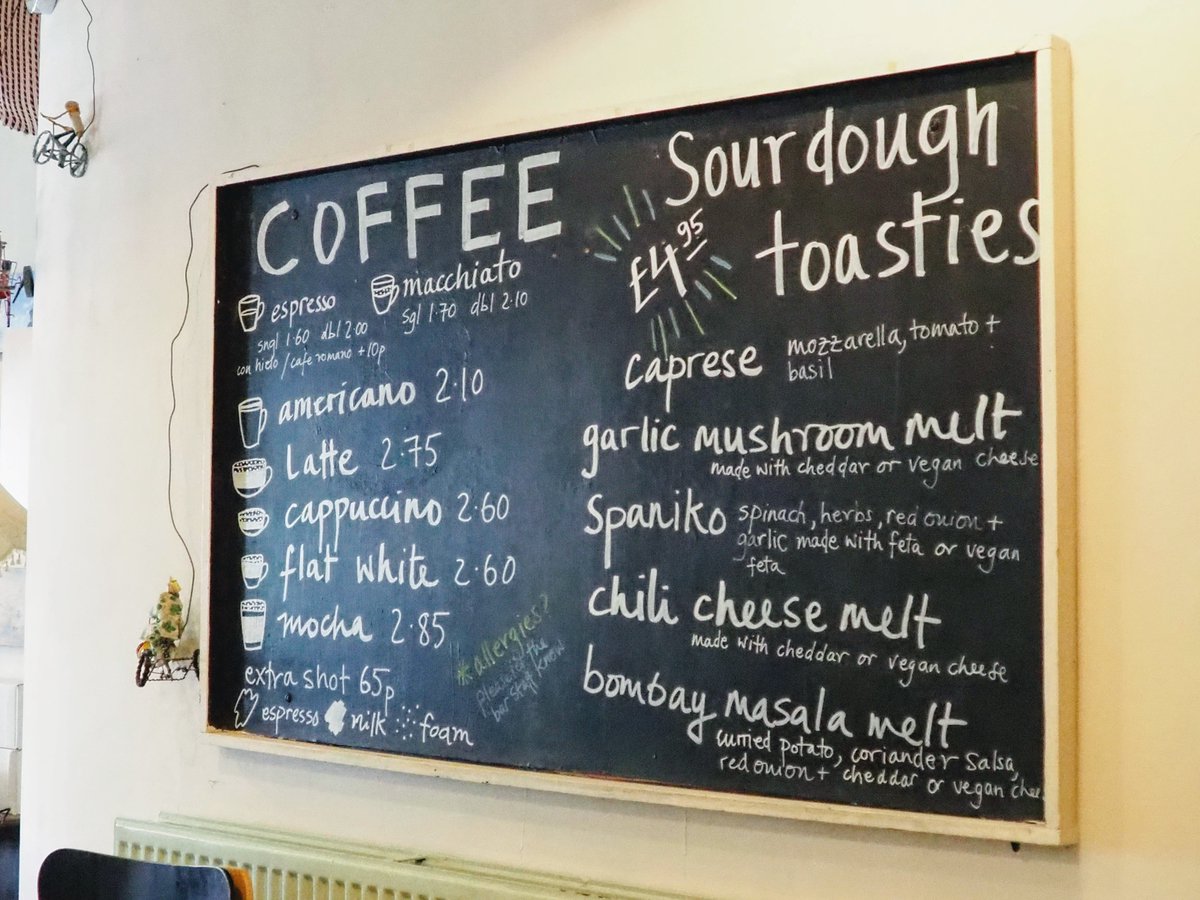 COFFEE
espresso
sngl 1.60 dbl 2.00
con hielo / cafe romano +10p
macchiato
sgl 1.70 dbl 2.10
americano 2.10
Latte 2.75
cappuccino 2.60
flat white 2.60
mocha 2.85
extra shot 65p
espresso milk foam
*allergies?
please let the
bar staff know
Sourdough
toasties
£4.95
caprese mozzarella, tomato +
basil
garlic mushroom melt
made with cheddar or vegan cheese
Spaniko spinach, herbs, red onion +
garlic made with feta or vegan
feta
chili cheese melt
made with cheddar or vegan cheese
bombay masala melt
curried potato, coriander salsa,
red onion + cheddar or vegan chee